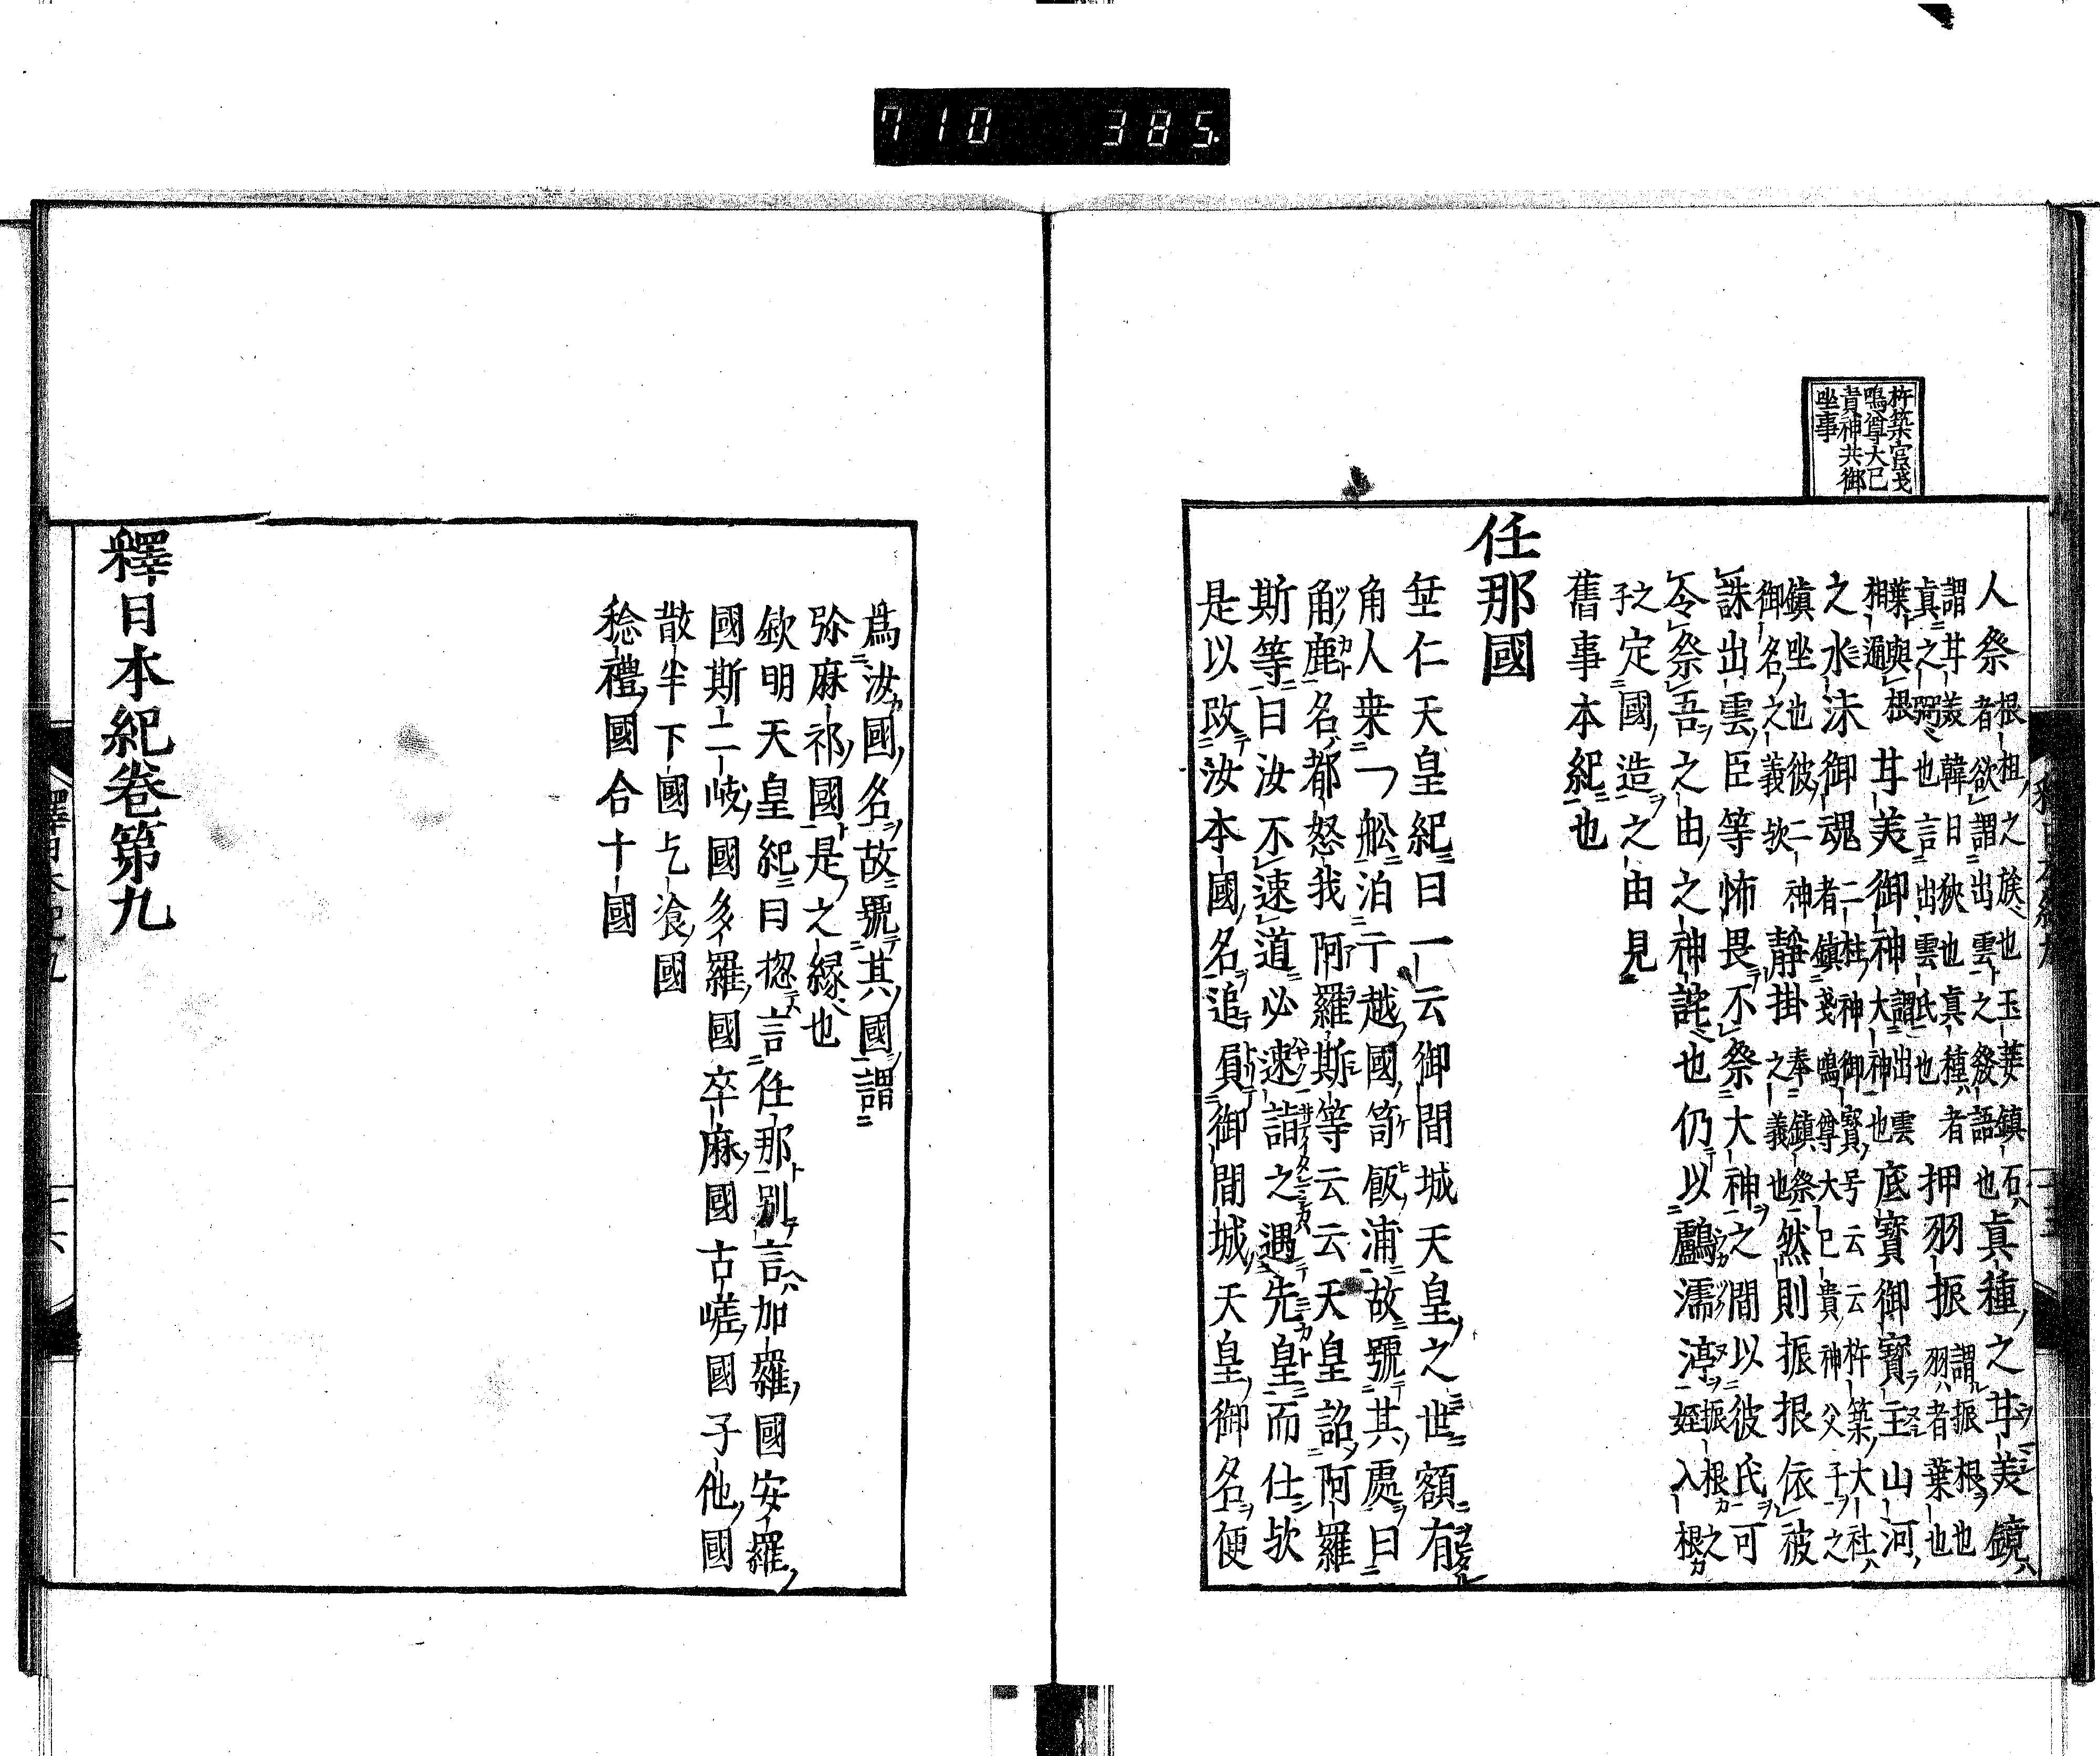 710 385
杵築宮戔
鳴尊大己
貴神共御
坐事
人祭者欲謂出雲之發語也真種之甘美鏡
根祖之族也玉菨鎮石
謂甘美韓日狄也真種者押羽振謂振根也
真之弼也言出雲氏也羽者葉也
葉與根甘美御神謂出雲底寶御寶主山河
相通大神神也
之水泳御魂二柱神御寶号云云杵築大社
者鎮戔鳴尊大己貴神父子之
鎮坐也彼二神靜掛奉鎮祭然則振根依被
御名之義欤之義也
誅出雲臣等怖畏不祭大神之間以彼氏可
令祭吾之由之神託也仍以鸕濡渟振根之
姪入根
之子定國造之由見
舊事本紀也
任那國
垂仁天皇紀曰一云御間城天皇之世額有
角人乗一舩泊于越國笥飯浦故號其處曰
角鹿名都怒我阿羅斯等云云天皇詔阿羅
斯等曰汝不速道必速詣之遇先皇而仕欤
是以改汝本國名追負御間城天皇御名便
爲汝國名故號其國謂
弥麻祁國是之緣也
欽明天皇紀曰惣言任那別言加羅國安羅
國斯二岐國多羅國卒麻國古嗟國子他國
散半下國乞飡國
稔禮國合十國
釋日本紀卷第九